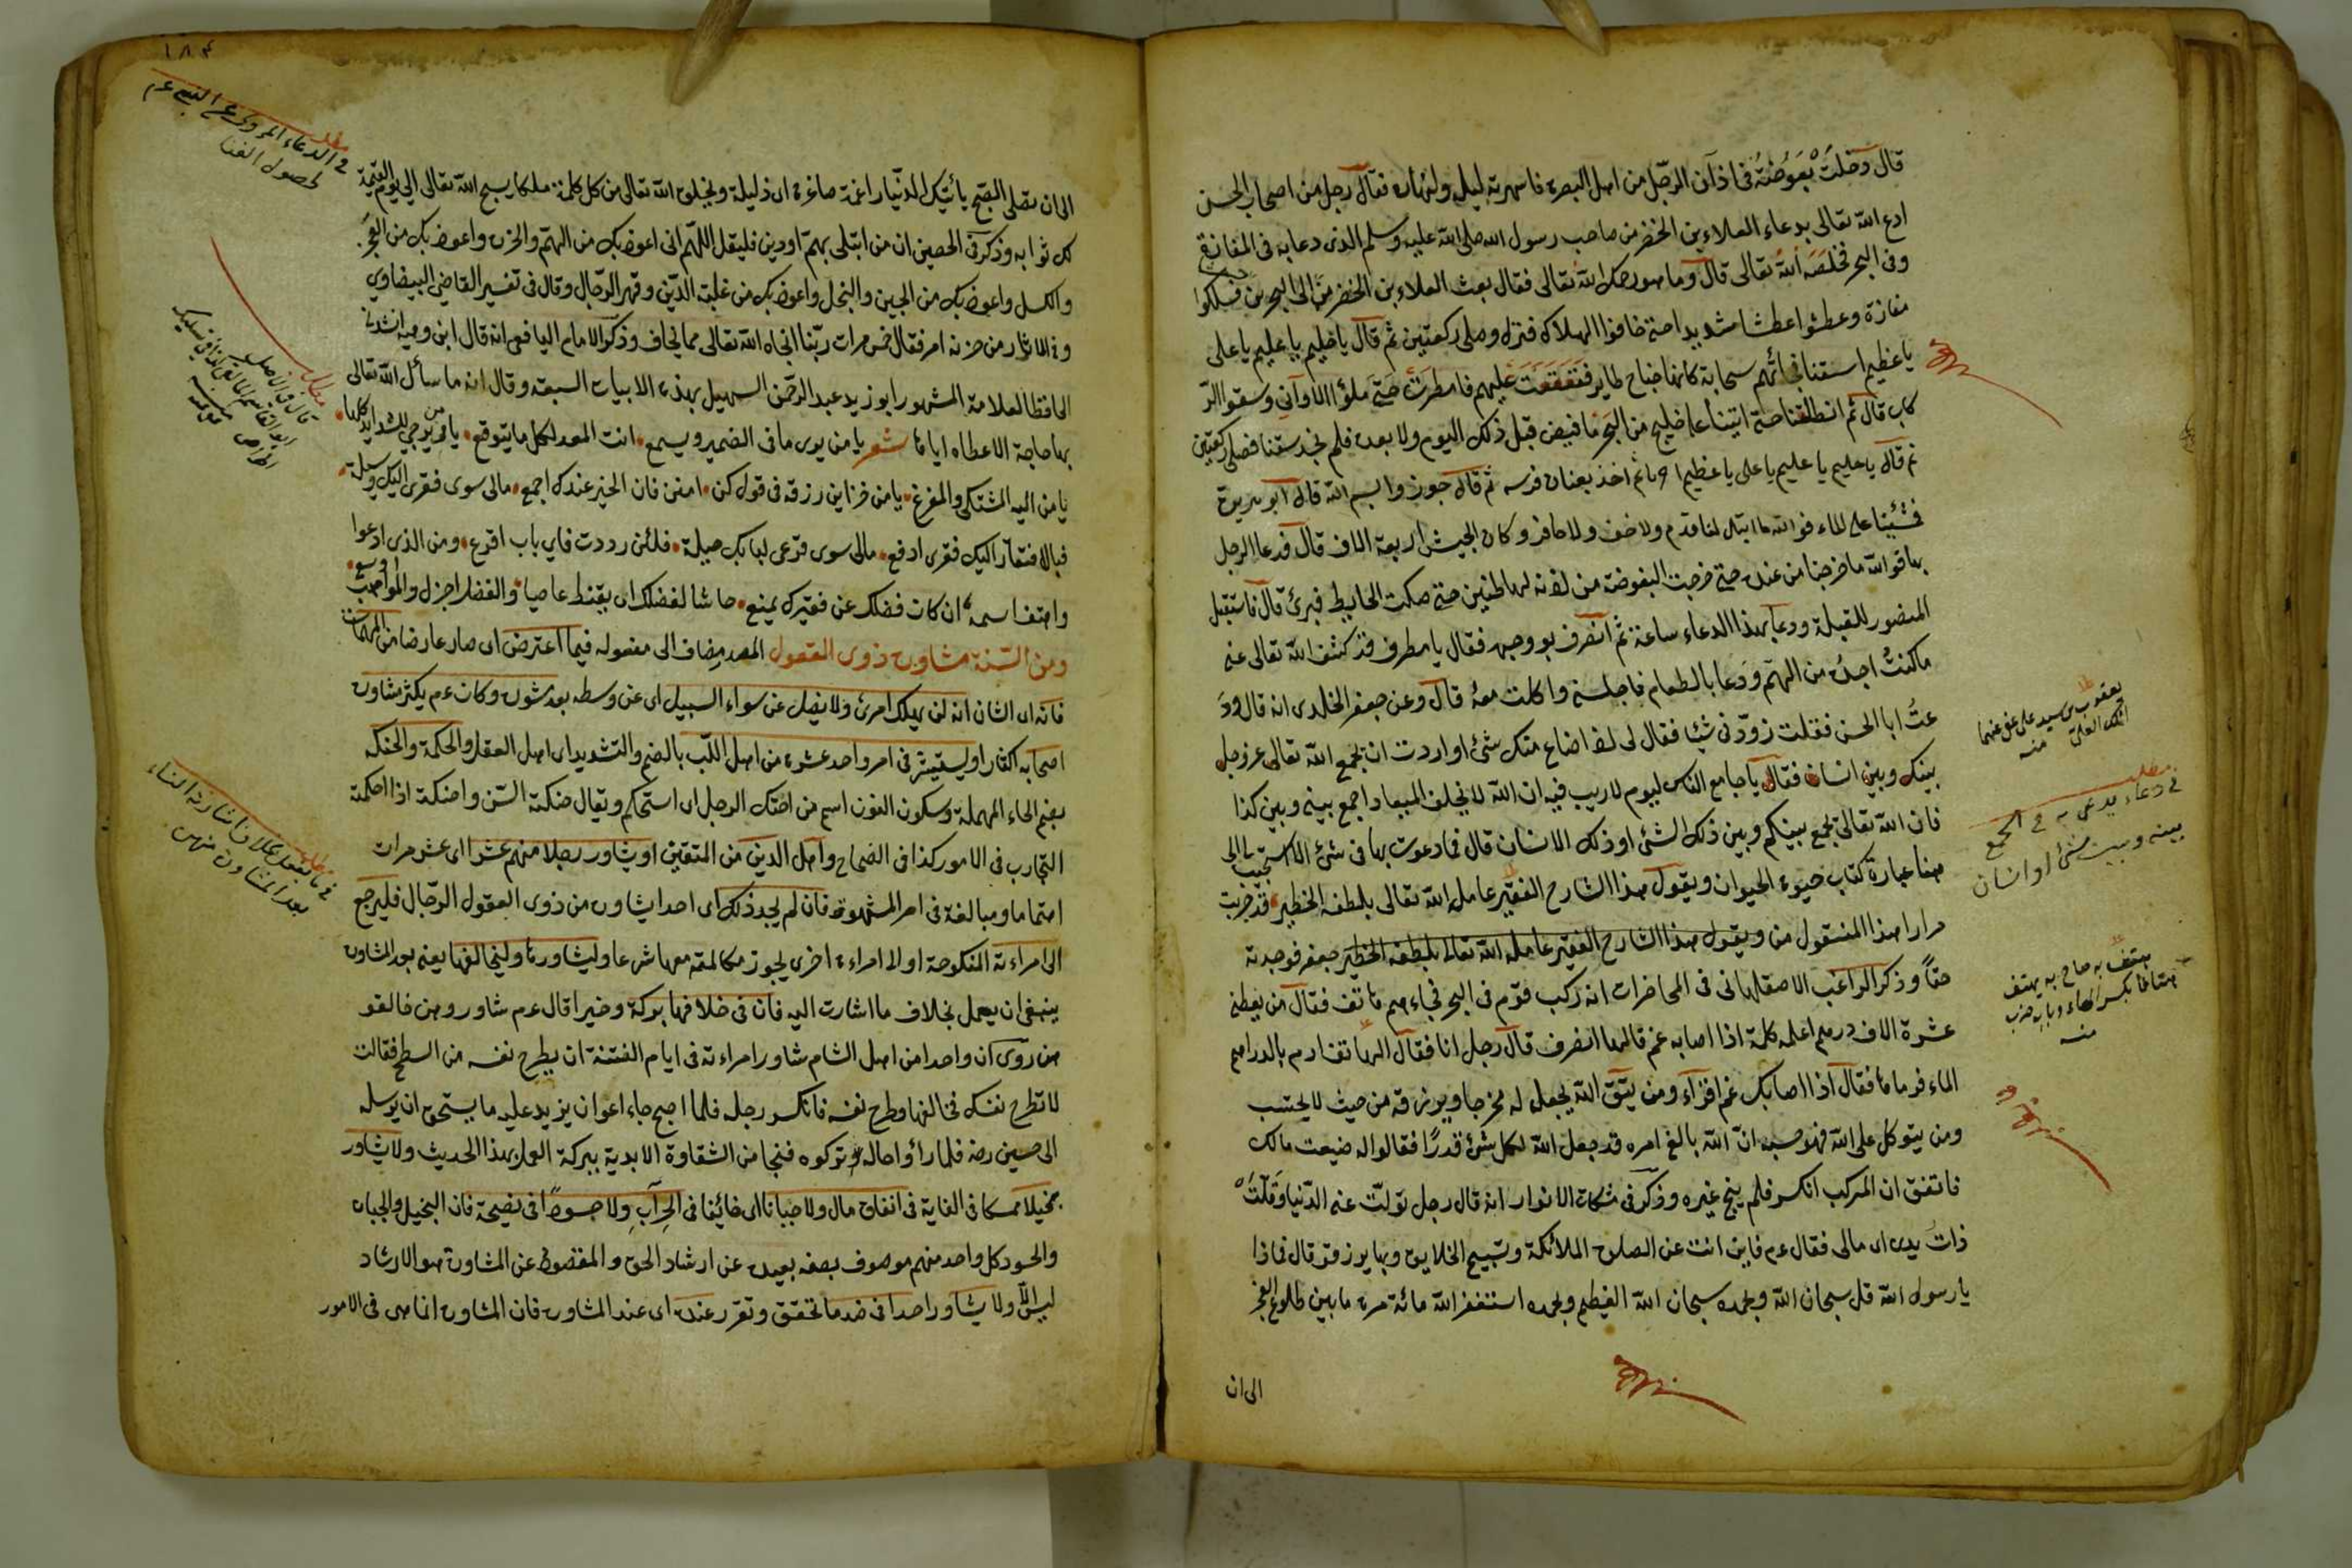 قال دخلت بعوضة في اذن الرجل من اهل البصرة فاسهرته ليله ونهاره فقال رجل من اصحاب الحسن
ادع الله تعالى بدعاء العلاء بن الخضرمي صاحب رسول الله صلى الله عليه وسلم الذي دعا به في المفازة
وفي البحر فخلصه الله تعالى قال وما هو رحمك الله تعالى فقال بعث العلاء بن الخضرمي الى البحرين فسلكوا
مفازة وعطشوا عطشا شديدا حتى خافوا الهلاك فنزل وصلى ركعتين ثم قال يا حليم يا عليم يا على
يا عظيم اسقنا فجائهم سحابة كانها جناح طاير فتقعقعت عليهم فامطرت حتى ملؤا الاواني وسقوا الر
كاب قال ثم انطلقنا حتى اتينا على خليج من البحر ما فيض قبل ذلك اليوم ولا بعده فلم نجد سفنا فصلى ركعتين
ثم قال يا حليم يا عليم يا على يا عظيم اجزنا ثم اخذ بعنان فرسه ثم قال جوزوا بسم الله قال ابو هريرة
فمشينا على الماء فوالله ما ابتل لنا قدم ولا خف ولا حافر وكان الجيش اربعة الاف قال فدعا الرجل
بها فوالله ما خرجنا من عنده حتى خرجت البعوضة من اذنه لها طنين حتى صكت الحايط فبرئ قال فاستقبل
المنصور للقبلة ودعا بهذا الدعاء ساعة ثم انصرف بوجهه فقال يا مطرف قد كشف الله تعالى عنى
ما كنت اجده من الهم ودعا بالطعام فاجلسني واكلت معه قال وعن جعفر الخلدي انه قال ود
عت ابا الحسن فقلت زودني شيئا فقال لى اذا ضاع منك شئ او اردت ان يجمع الله تعالى عز وجل
بينك وبين انسان فقال يا جامع الناس ليوم لا ريب فيه ان الله لا يخلف الميعاد اجمع بيني وبين كذا
فان الله تعالى يجمع بينكم وبين ذلك الشئ او ذلك الانسان قال فما دعوت بها في شئ الا استجيب الى
هنا عبارة كتاب حيوة الحيوان ويقول هذا الشارح الفقير عامله الله تعالى بلطفه الخطير قد جربت
مرارا هذا المنقول من ويقول هذا الشارح الفقير عامله الله تعالى بلطفه الخطير جعفر فوجدته
حقا وذكر الراغب الاصفهاني في المحاضرات انه ركب قوم في البحر فجاءهم هاتف فقال من يعطني
عشرة الاف درهم اعلمه كلمة اذا اصابه غم قالها انصرف قال رجل انا فقال الهاتف ارم بالدراهم
الماء فرماها فقال اذا اصابك غم اقراء ومن يتق الله يجعل له مخرجا ويرزقه من حيث لا يحتسب
ومن يتوكل على الله فهو حسبه ان الله بالغ امره قد جعل الله لكل شئ قدرا فقالوا له ضيعت مالك
فاتفق ان المركب انكسر فلم ينج غيره وذكر في مشكاة الانوار انه قال رجل تولت عنى الدنيا وقلت
ذات يدي اى مالى فقال عم فاين انت عن الصلوة الملائكة وتسبيح الخلايق وبها يرزقون قال فماذا
يا رسول الله قل سبحان الله وبحمده سبحان الله العظيم وبحمده استغفر الله مائة مرة ما بين طلوع الفجر
الى ان
في دعاء يدعى به في الجمع
بينه وبين شئ او انسان
هتف به صاح به يهتف
هتافا بكسر الهاء وبابه ضرب
منه
١٨٤
الى ان تصلى الصبح يأتيك الدنيا راغمة صاغرة اى ذليلة ويخلق الله تعالى من كل كلمة ملكا يسبح الله تعالى الى يوم القيمة
لك ثوابه وذكر في الحصين ان من ابتلى بهم او دين فليقل اللهم انى اعوذ بك من الهم والحزن واعوذ بك من العجز
والكسل واعوذ بك من الجبن والبخل واعوذ بك من غلبة الدين وقهر الرجال وقال في تفسير القاضي البيضاوي
وفي الاثار من حزنه امر فقال خمس مرات ربنا انجاه الله تعالى مما يخاف وذكر الامام اليافعي انه قال ابن وحيه انشدنى
الحافظ العلامة المشهور ابو زيد عبد الرحمن السهيل بهذه الابيات السبعة وقال انه ما سأل الله تعالى
بها حاجة الا عطاه اياها شعر يا من يرى ما في الضمير ويسمع انت المعد لكل ما يتوقع يا من يرجى للشدايد كلها
يا من اليه المشتكى والمفزع يا من خزاين رزقه في قول كن امنن فان الخير عندك اجمع مالى سوى فقري اليك وسيلة
فبالافتقار اليك فقري ادفع مالى سوى قرعى لبابك حيلة فلئن رددت فاى باب اقرع ومن الذي ادعوا
واهتف اسمه ان كان فضلك عن فقيرك يمنع حاشا لفضلك ان يقنط عاصيا والفضل اجزل والمواهب اوسع
ومن السنة مشاورة ذوى العقول المصدر مضاف الى مفعوله فيما اعترض اى صار عارضا من المهمات
فانه اى الشان انه لن يهلك امرئ ولا يضل عن سواء السبيل اى عن وسطه بعد مشورة وكان عم يكثر مشاورة
اصحابه اكثارا ويستشير في امر واحد عشرة من اهل اللب بالضم والتشديد اى اهل العقل والحكمة والحنكة
بضم الحاء المهملة وسكون النون اسم من احتنك الرجل اى استحكم ويقال حنكته السن واحنكته اذا احكمته
التجارب في الامور كذا في الصحاح واهل الدين من المتقين او يشاور رجلا منهم عشرا اى عشر مرات
اهتماما ومبالغة في امر المشهورة فان لم يجد ذلك اى احدا يشاوره من ذوى العقول الرجال فليرجع
الى امراءته المنكوحة او الى امراءة اخرى يجوز مكالمته معها شرعا وليشاورها وليخالفها يعنى بعد المشاورة
ينبغى ان يعمل بخلاف ما اشارت اليه فان في خلافها بركة وخيرا قال عم شاوروهن خالفو
هن روى ان واحدا من اهل الشام شاور امراءته في ايام الفتنة ان يطرح نفسه من السطح فقالت
لا تطرح نفسك فخالفها وطرح نفسه فانكسر رجله فلما اصبح جاء اعوان يزيد عليه ما يستحق ان يرسله
الى حسين رضه فلما رأوا حاله تركوه فنجا من الشقاوة الابدية ببركة العمل بهذا الحديث ولا يشاور
بخيلا ممسكا في الغاية في انفاق مال ولا جبانا اى خائفا في الحراب ولا حسودا في نصيحة فان البخيل والجبان
والحسود كل واحد منهم موصوف بصفه بعيدة عن ارشاد الحق والمقصود عن المشاورة هو الارشاد
ليس الا ولا يشاور احدا في ضد ما تحقق وتقرر عنده اى عند المشاورة فان المشاورة انما هي في الامور
مطلب
في الدعاء المروى عن النبي عم
لحصول الغنا
في ما يفعل بخلاف اشارة النساء
بعد المشاورة منهن